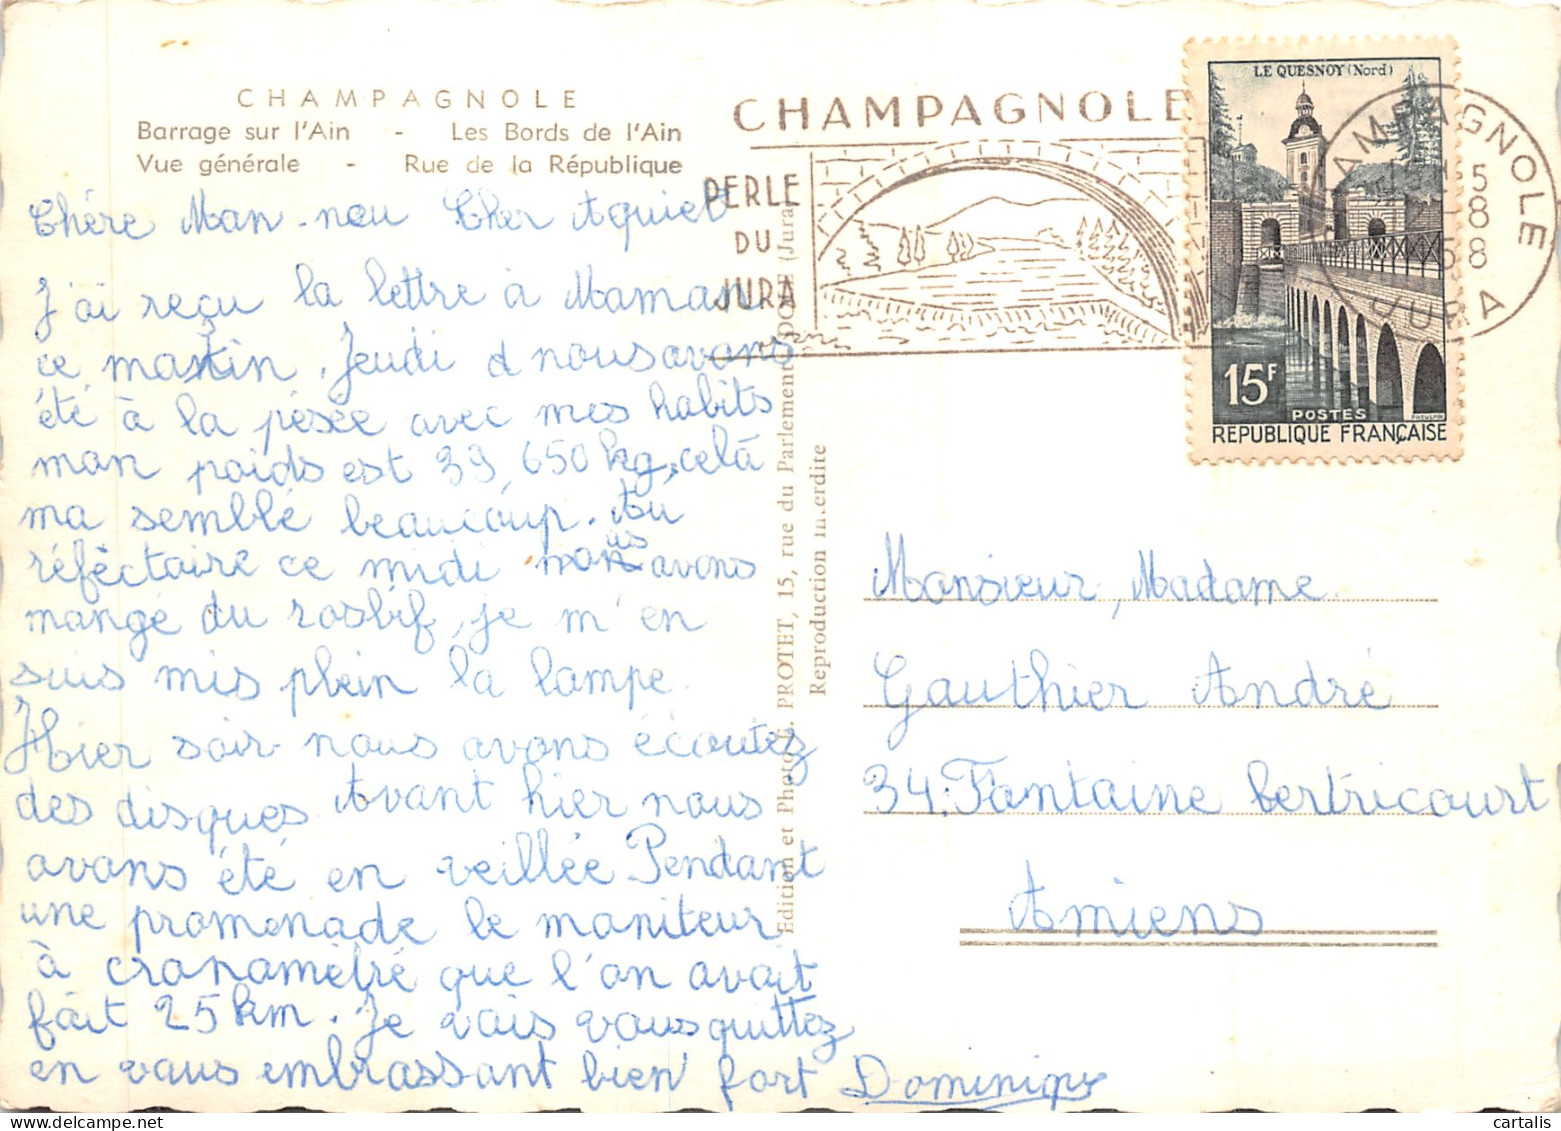 CHAMPAGNOLE
Barrage sur l'Ain - Les Bords de l'Ain
Vue générale - Rue de la République
CHAMPAGNOLE
PERLE
DU
JURA
LE QUESNOY (Nord)
15F
POSTES
REPUBLIQUE FRANÇAISE
CHAMPAGNOLE
5
8
58
JURA
Chére Man-nou Cher Aquiet
J'ai reçu la lettre à Maman
ce mastin, Jeudi d nous avons
été à la pésée avec mes habits
mon poids est 39,650 kg, celà
ma semblé beaucoup. Au
réféctoire ce midi nous avons
mangé du rosbif, je m'en
suis mis plein la lampe.
Hier soir nous avons écoutez
des disques Avant hier nous
avons été en veillée Pendant
une promenade le moniteur
à cronamétré que l'on avait
fait 25 km. Je vais vous quittez
en vous embrassant bien fort Dominique
Edition et Photo L. PROTET, 15, rue du Parlement, DOLE (Jura)
Reproduction interdite
Monsieur, Madame
Gauthier André
34, Fontaine bertricourt
Amiens
cartalis